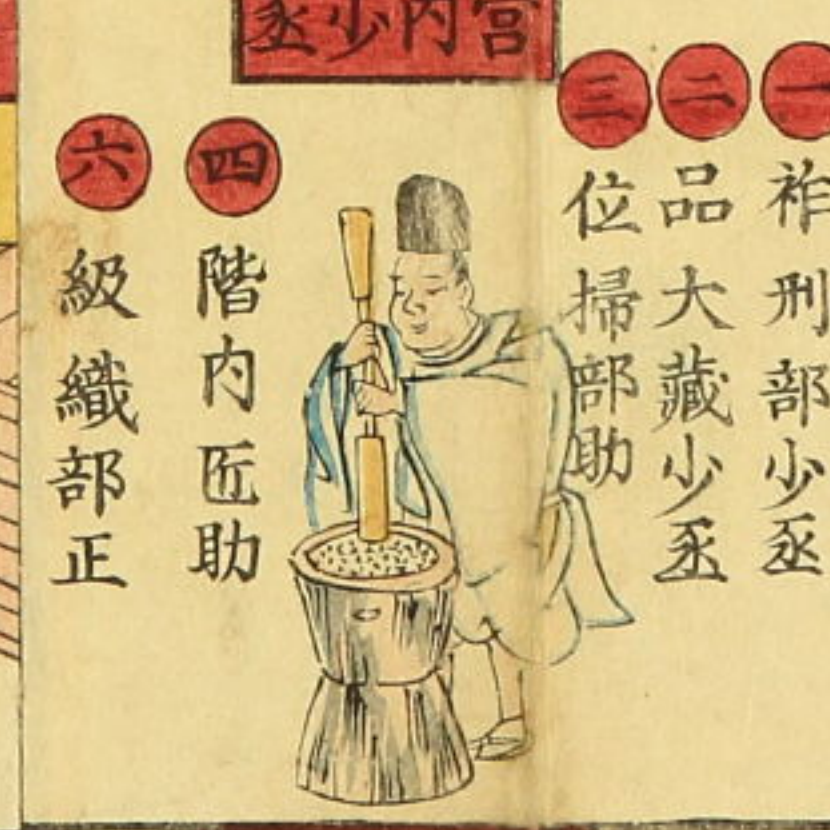 宮内少丞
一 祚 刑部少丞
二 品 大藏少丞
三 位 掃部助
四 階 内匠助
六 級 織部正